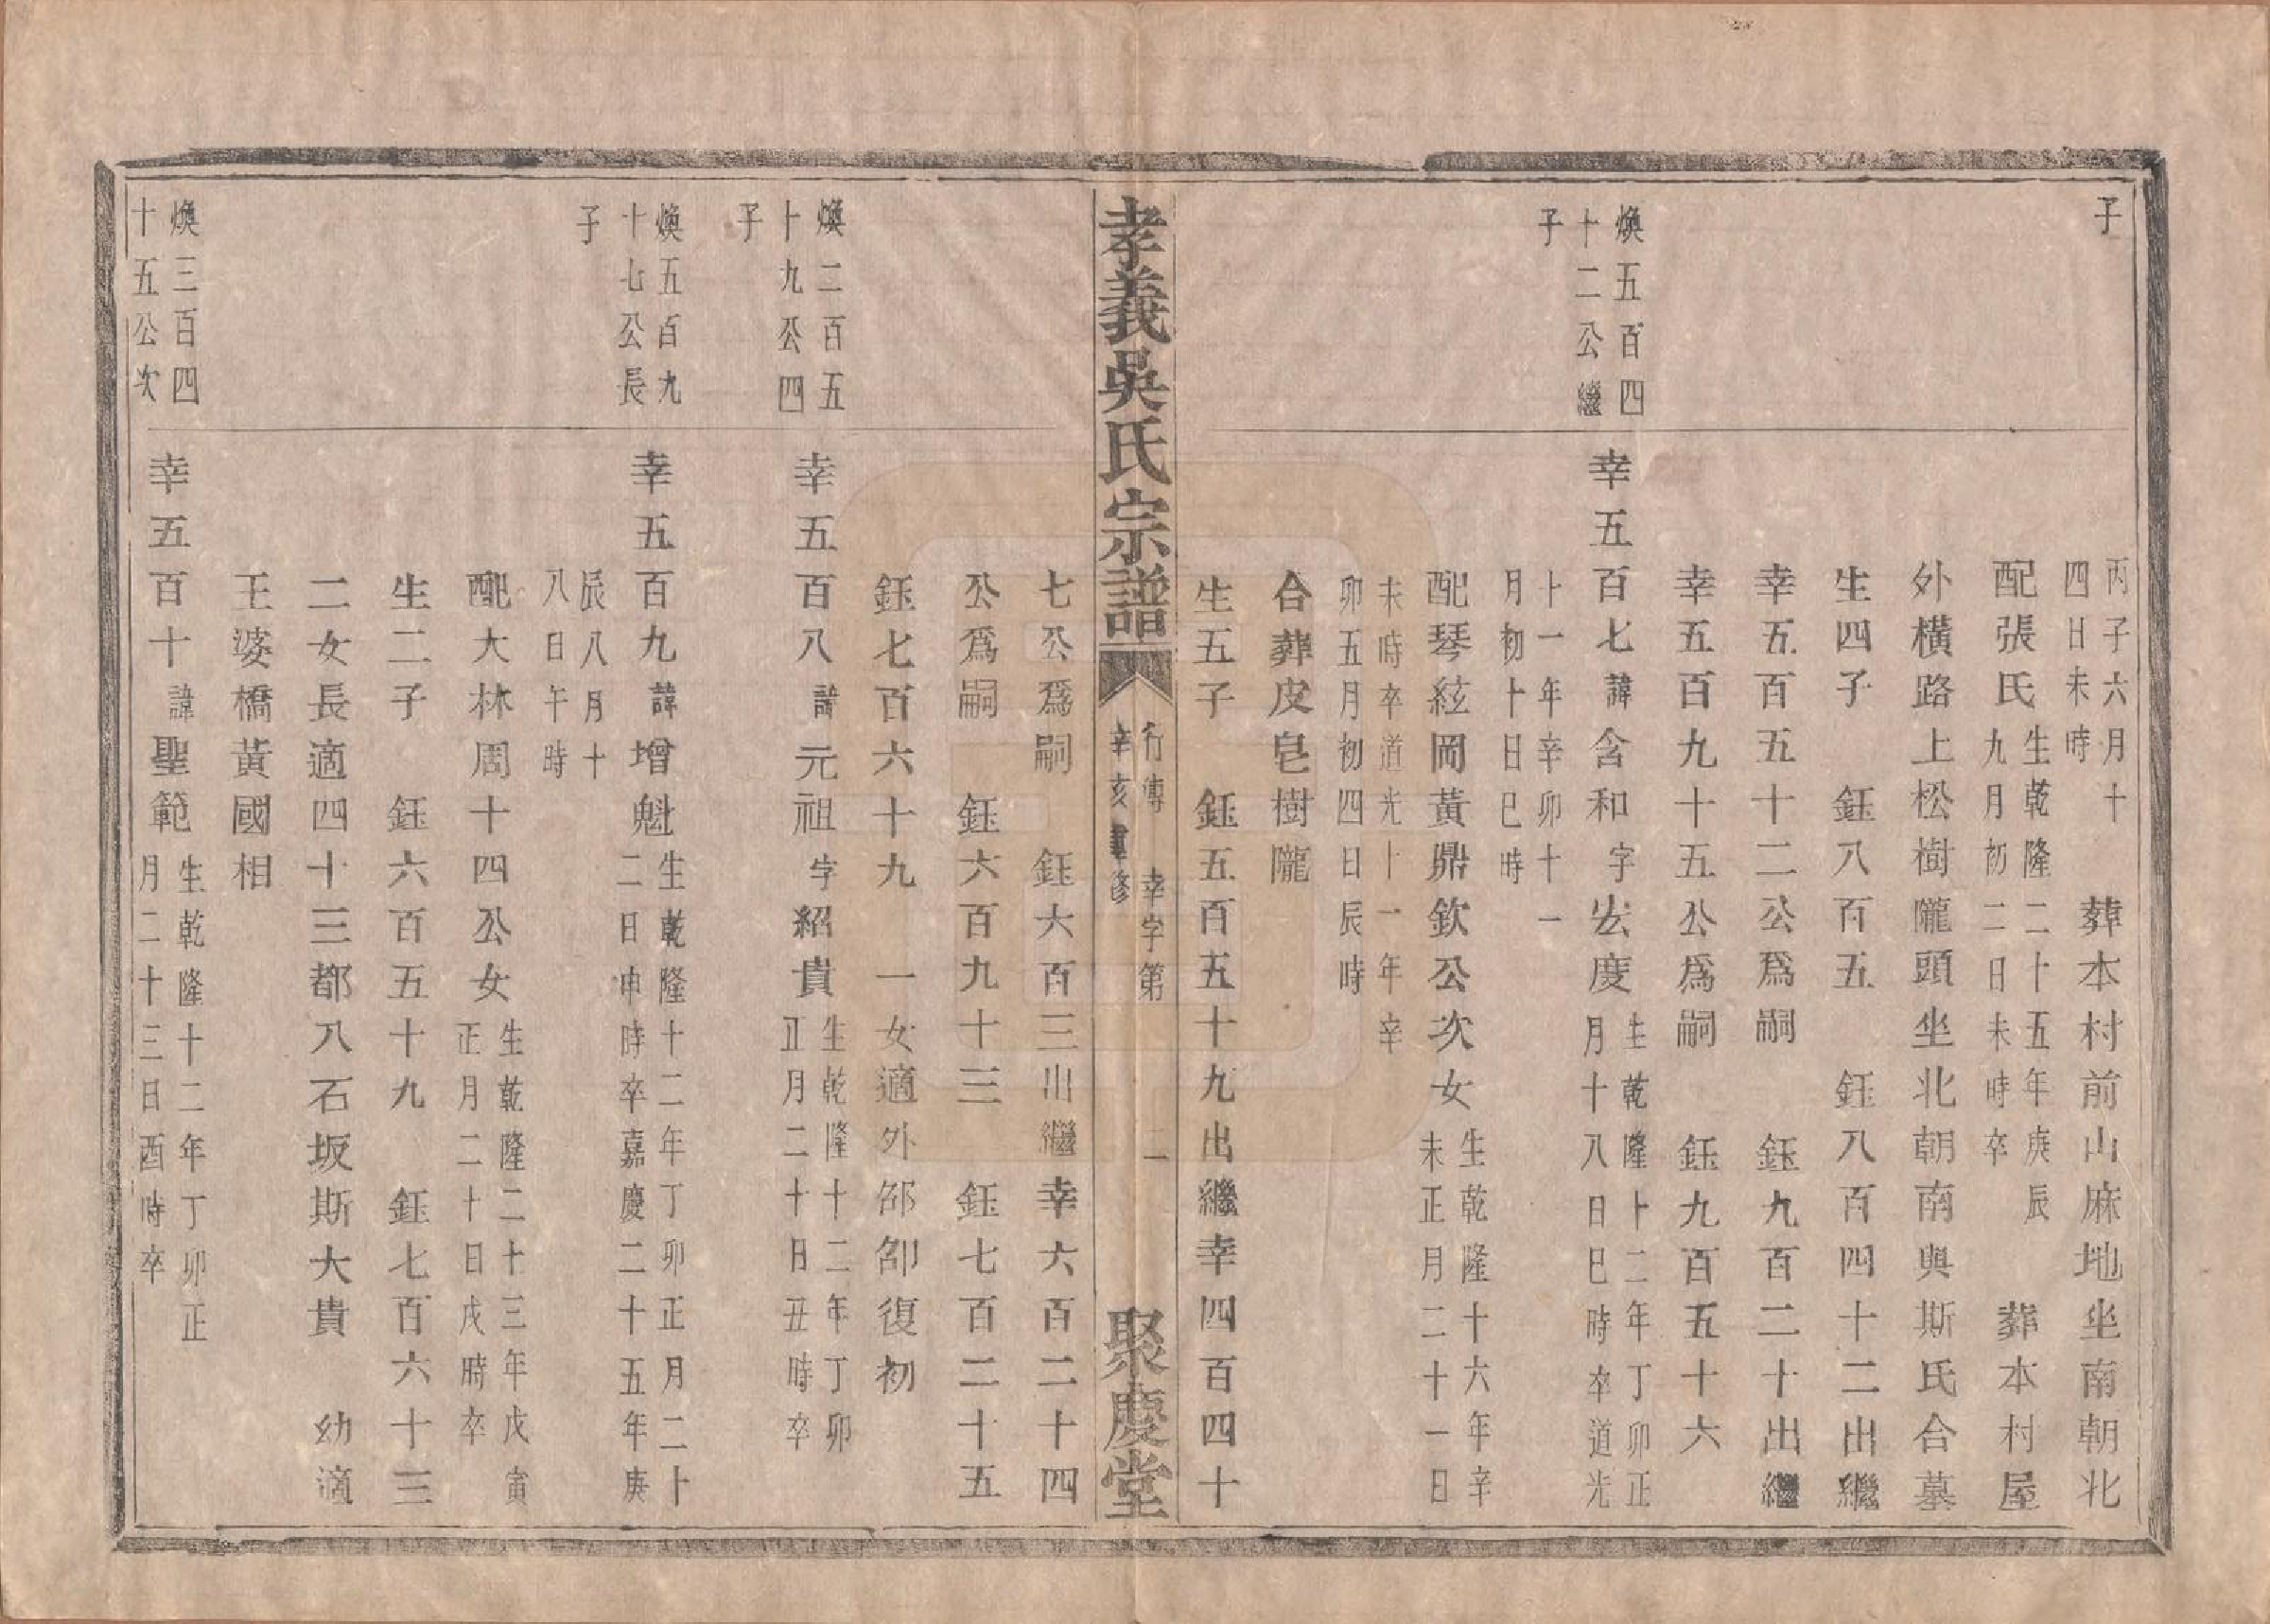 子
丙子六月十
四日未時
葬本村前山麻地坐南朝北
配張氏
生乾隆二十五年庚辰
九月初二日未時卒
葬本村屋
外橫路上松樹隴頭坐北朝南與斯氏合墓
生四子 鈺八百五 鈺八百四十二出繼
幸五百五十二公爲嗣 鈺九百二十出繼
幸五百九十五公爲嗣 鈺九百五十六
煥五百四
十二公繼
子
幸五百七諱含和字宏度
生乾隆十二年丁卯正
月十八日巳時卒道光
十一年辛卯十一
月初十日巳時
配琴絃岡黃鼎欽公次女
生乾隆十六年辛
未正月二十一日
未時卒道光十一年辛
卯五月初四日辰時
合葬皮皂樹隴
生五子 鈺五百五十九出繼幸四百四十
孝義吳氏宗譜
行傳 幸字第 二
辛亥重修
聚慶堂
七公爲嗣 鈺六百三出繼幸六百二十四
公爲嗣 鈺六百九十三 鈺七百二十五
鈺七百六十九 一女適外邵邵復初
煥二百五
十九公四
子
幸五百八諱元祖字紹貴
生乾隆十二年丁卯
正月二十日丑時卒
煥五百九
十七公長
子
幸五百九諱增魁
生乾隆十二年丁卯正月二十
二日申時卒嘉慶二十五年庚
辰八月十
八日午時
配大林周十四公女
生乾隆二十三年戊寅
正月二十日戌時卒
生二子 鈺六百五十九 鈺七百六十三
二女長適四十三都八石坂斯大貴 幼適
王婆橋黃國相
煥三百四
十五公次
幸五百十諱聖範
生乾隆十二年丁卯正
月二十三日酉時卒